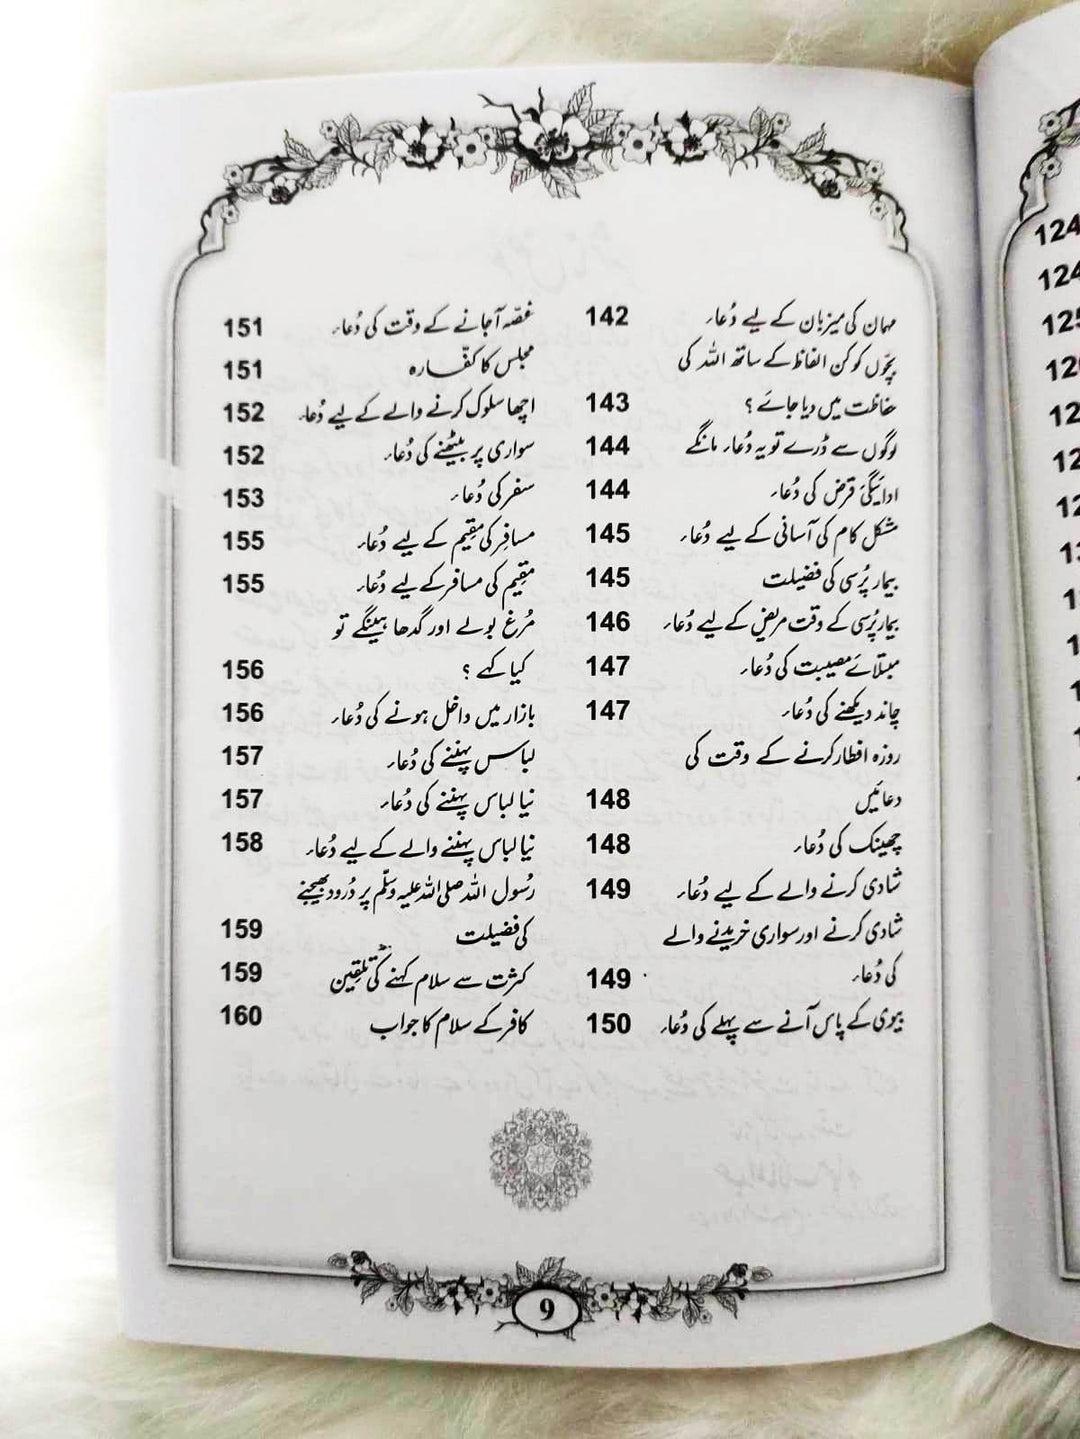 مہمان کی میزبان کے لیے دُعاء 142
بچّوں کو کن الفاظ کے ساتھ اللہ کی
حفاظت میں دیا جائے؟ 143
لوگوں سے ڈرے تو یہ دُعاء مانگے 144
ادائیگیٔ قرض کی دُعاء 144
مشکل کام کی آسانی کے لیے دُعاء 145
بیمار پُرسی کی فضیلت 145
بیمار پُرسی کے وقت مریض کے لیے دُعاء 146
مبتلائے مصیبت کی دُعاء 147
چاند دیکھنے کی دُعاء 147
روزہ افطار کرنے کے وقت کی
دعائیں 148
چھینک کی دُعاء 148
شادی کرنے والے کے لیے دُعاء 149
شادی کرنے اور سواری خریدنے والے
کی دُعاء 149
بیوی کے پاس آنے سے پہلے کی دُعاء 150
غصّہ آجانے کے وقت کی دُعاء 151
مجلس کا کفّارہ 151
اچھا سلوک کرنے والے کے لیے دُعاء 152
سواری پر بیٹھنے کی دُعاء 152
سفر کی دُعاء 153
مسافِر کی مقِیم کے لیے دُعاء 155
مقِیم کی مسافر کے لیے دُعاء 155
مُرغ بولے اور گدھا ہینگے تو
کیا کہے؟ 156
بازار میں داخل ہونے کی دُعاء 156
لباس پہننے کی دُعاء 157
نیا لباس پہننے کی دُعاء 157
نیا لباس پہننے والے کے لیے دُعاء 158
رسُول اللہ صلی اللہ علیہ وسلّم پر دُرود بھیجنے
کی فضیلت 159
کثرت سے سلام کہنے کی تلقِین 159
کافر کے سلام کا جواب 160
9
124